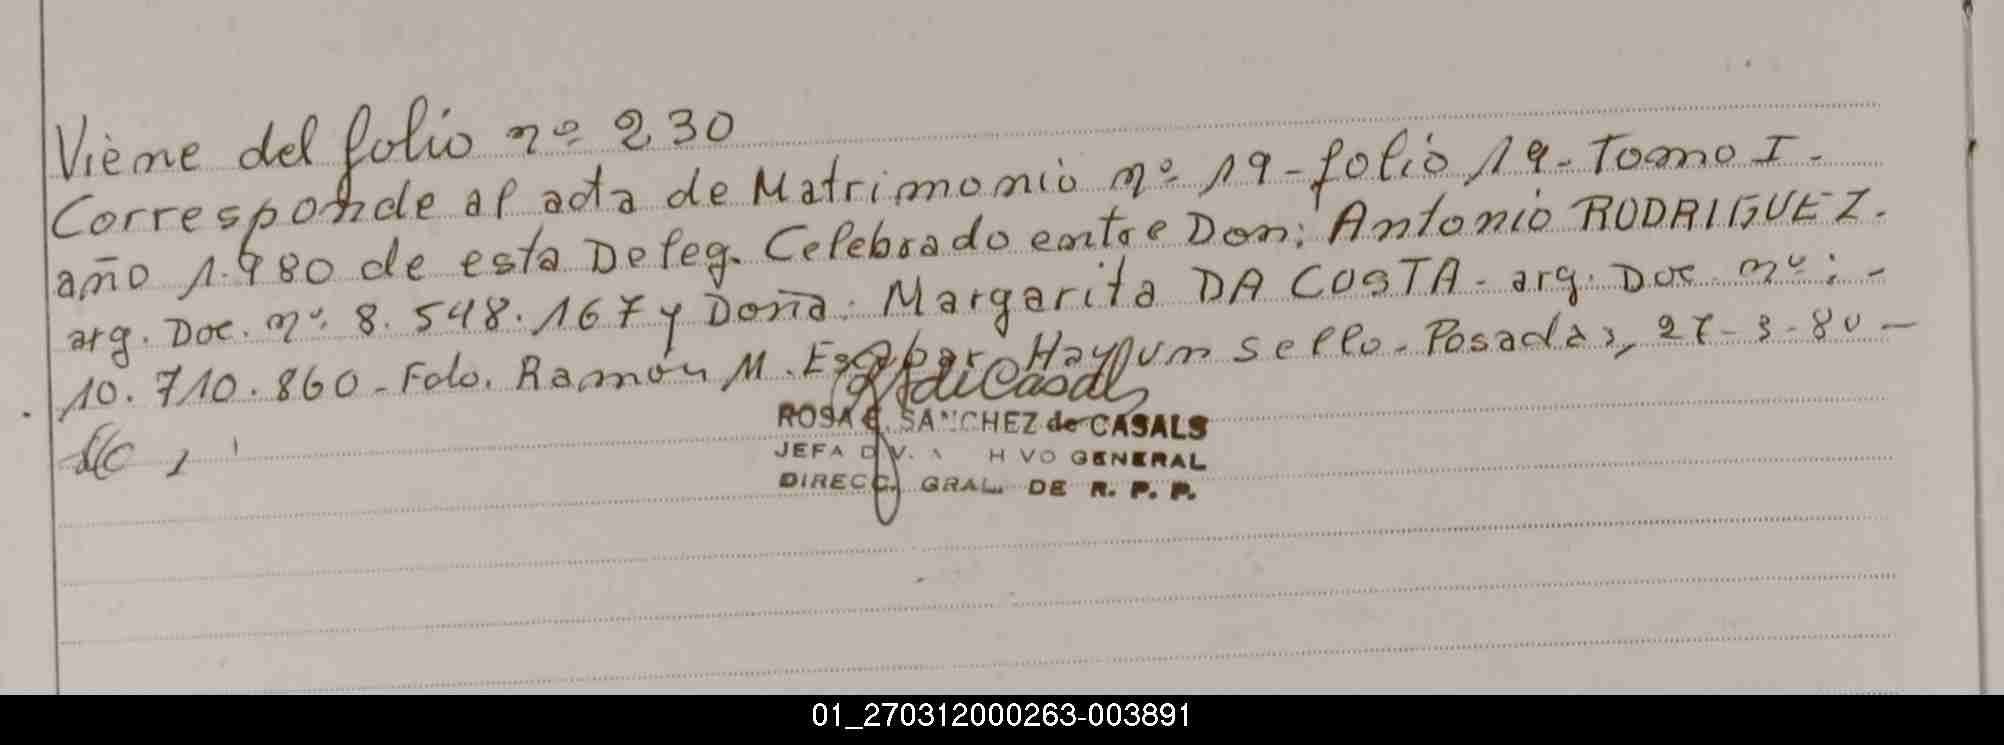 Viene del folio nº 230
Corresponde al acta de Matrimonio nº 19 - folio 19 - Tomo I -
año 1.980 de esta Deleg. Celebrado entre Don: Antonio RODRIGUEZ -
arg. Doc. nº: 8.548.167 y Doña: Margarita DA COSTA - arg. Doc. nº: -
10.710.860 - Fdo. Ramón M. Hay un sello - Posadas, 27-3-80 -
ROSA E. SANCHEZ de CASALS
JEFA DIV. A HIVO GENERAL
DIRECC. GRAL. DE R. P. P.
01_270312000263-003891